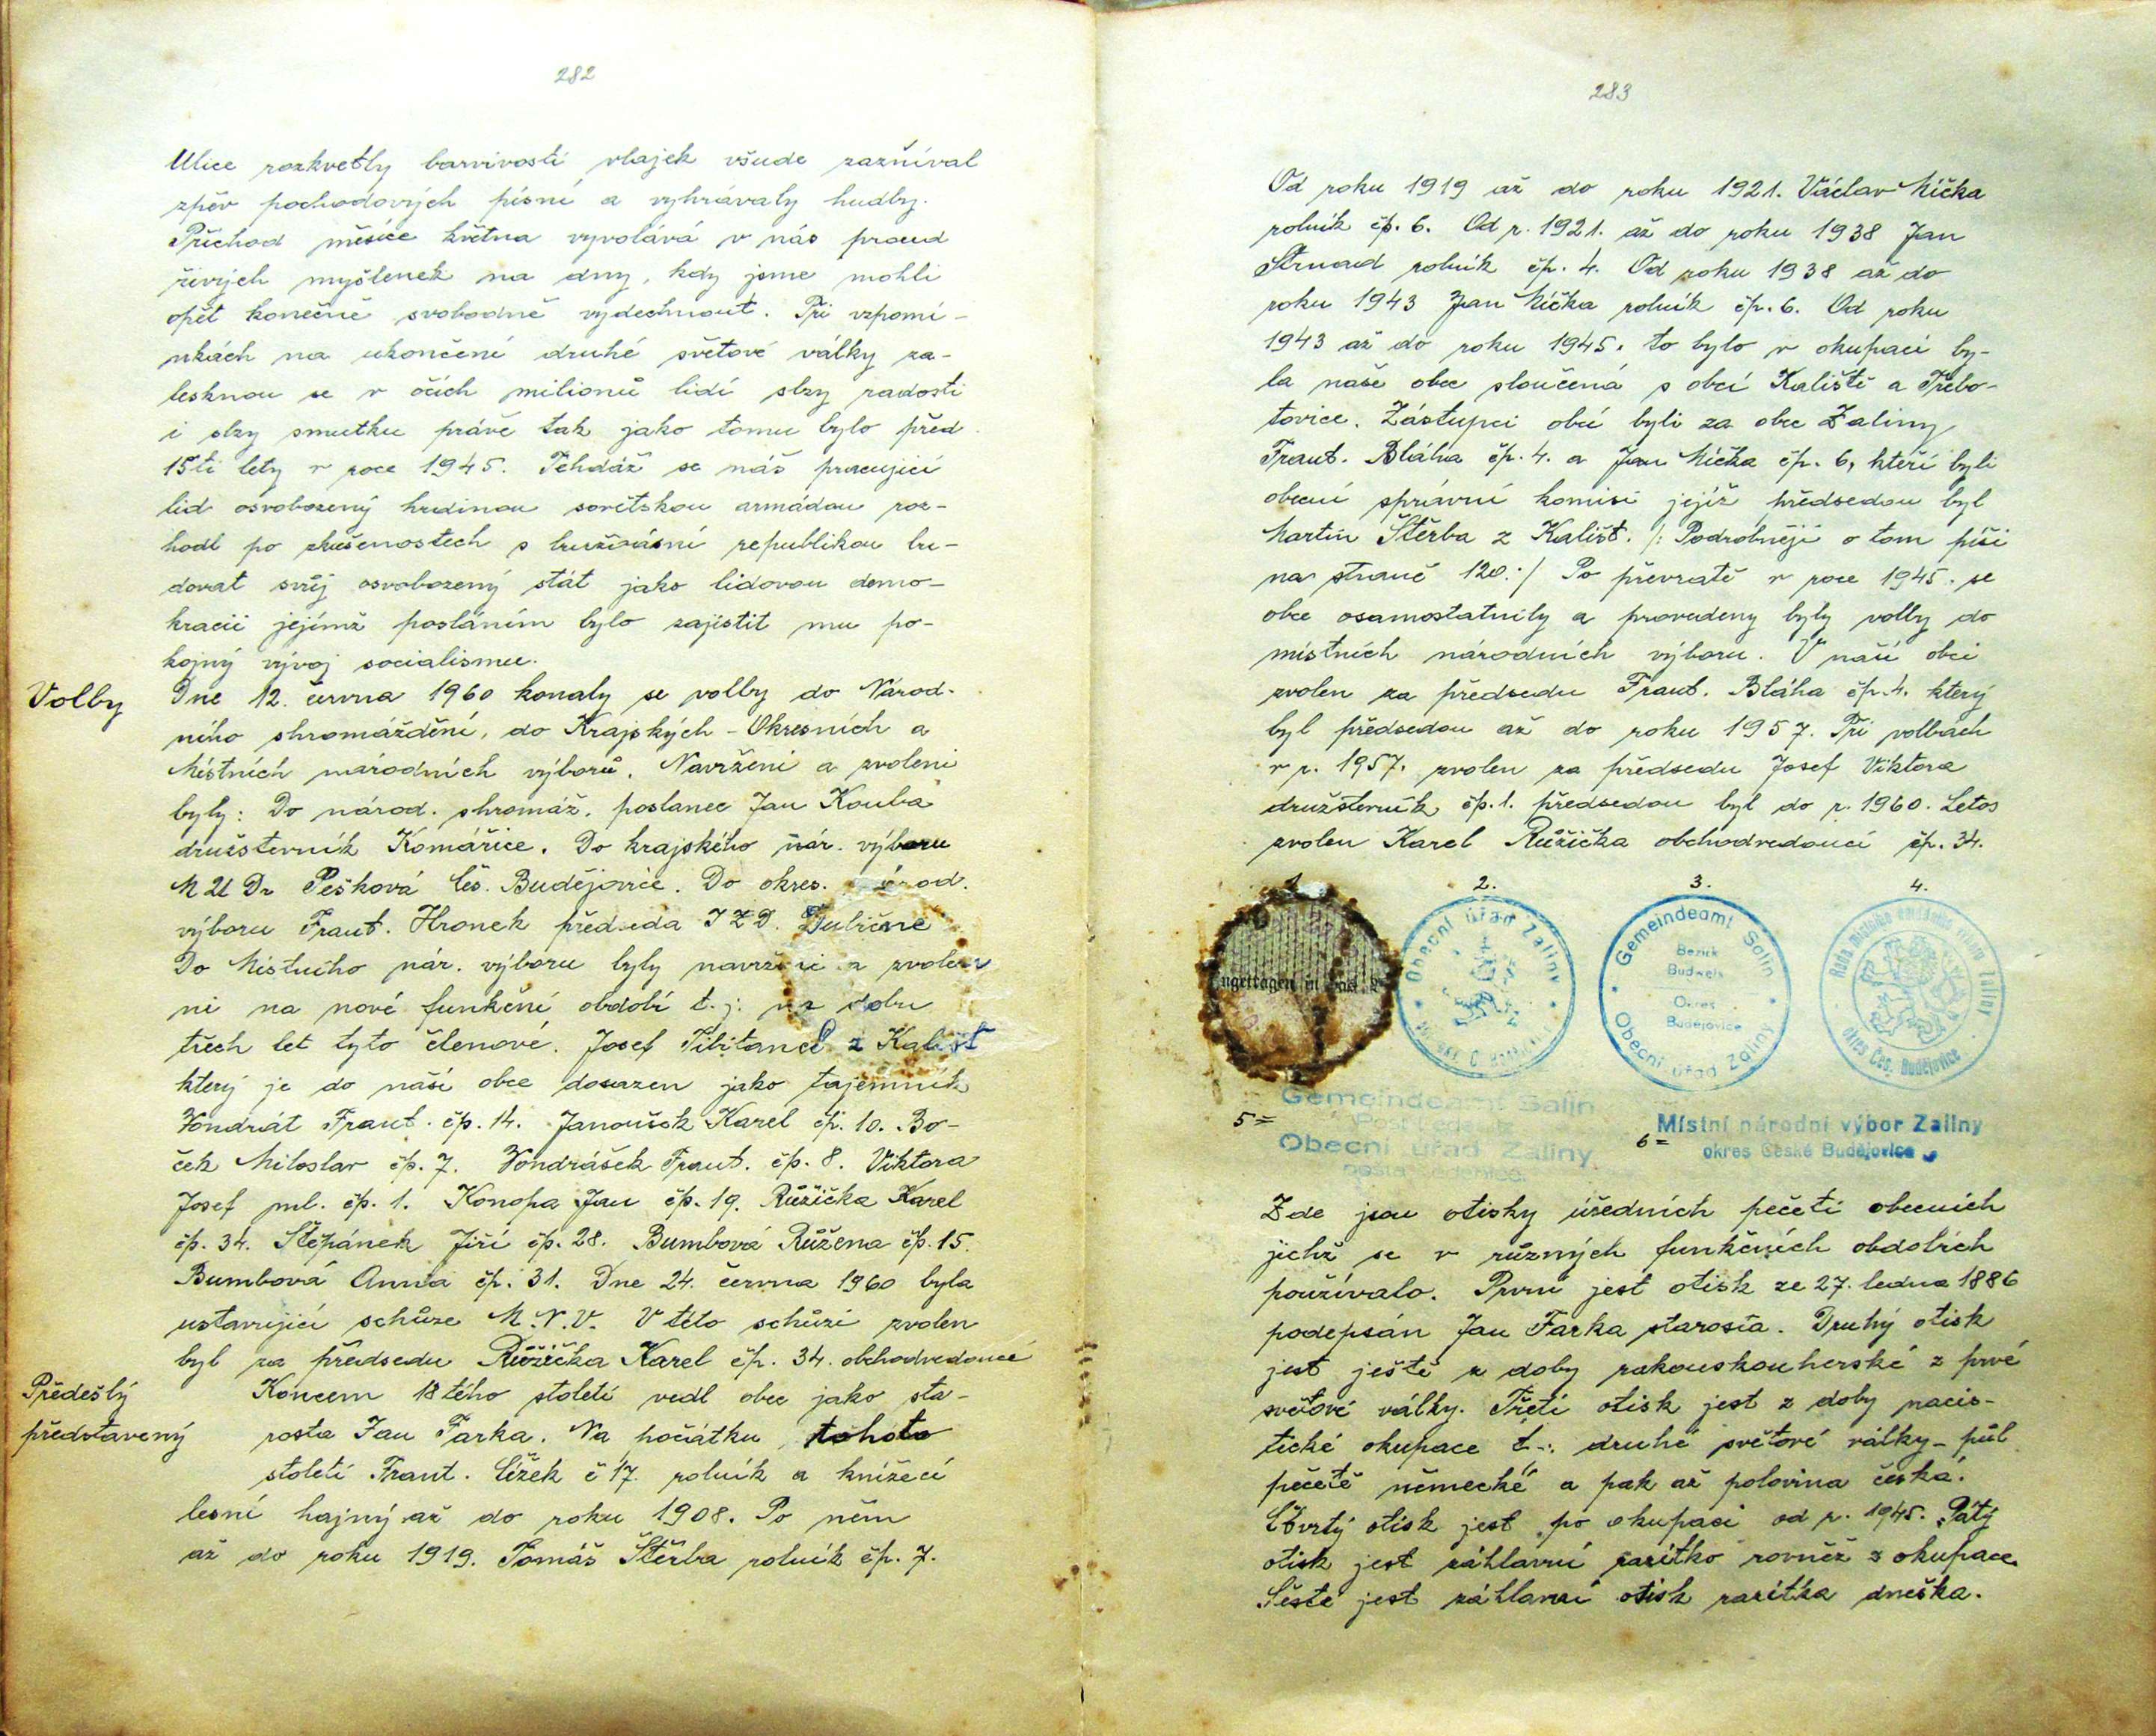 282
Ulice rozkvetly barvivostí vlajek všude zazníval
zpěv pochodových písní a vyhrávaly hudby.
Příchod měsíce května vyvolává v nás proud
živých myšlenek na dny, kdy jsme mohli
opět konečně svobodně vydechnout. Při vzpomí-
nkách na ukončení druhé světové války za-
lesknou se v očích milionů lidí slzy radosti
i slzy smutku právě tak jako tomu bylo před
15ti lety v roce 1945. Tehdáž se náš pracující
lid osvobozený hrdinou sovětskou armádou roz-
hodl po zkušenostech s buržoásní republikou bu-
dovat svůj osvobozený stát jako lidovou demo-
kracii jejímž posláním bylo zajistit mu po-
kojný vývoj socialismu.
Volby
Dne 12. června 1960 konaly se volby do Národ-
ního shromáždění, do Krajských - Okresních a
Místních národních výborů. Navrženi a zvoleni
byly: Do národ. shromáž. poslanec Jan Kouba
družstevník Komářice. Do krajského nár. výboru
MUDr Pešková Čes. Budějovice. Do okres. národ.
výboru Frant. Hronek předseda JZD. Dubičné
Do Místního nár. výboru byly navrženi a zvole-
ni na nové funkční období t.j. na dobu
třech let tyto členové. Josef Tibitancl z Kališt
který je do naší obce dosazen jako tajemník
Vondrát Frant. čp. 14. Janoušek Karel čp. 10. Bo-
ček Miloslav čp. 7. Vondrášek Frant. čp. 8. Viktora
Josef ml. čp. 1. Konopa Jan čp. 19. Růžička Karel
čp. 34. Štěpánek Jiří čp. 28. Bumbová Růžena čp. 15.
Bumbová Anna čp. 31. Dne 24. června 1960 byla
ustavující schůze M.N.V. V této schůzi zvolen
byl za předsedu Růžička Karel čp. 34. obchodvedoucí
Předešlý
představený
Koncem 18tého století vedl obec jako sta-
rosta Jan Farka. Na počátku tohoto
století Frant. Čížek č 17. rolník a knížecí
lesní hajný až do roku 1908. Po něm
až do roku 1919. Tomáš Štěrba rolník čp. 7.
283
Od roku 1919 až do roku 1921. Václav Mička
rolník čp. 6. Od r. 1921. až do roku 1938 Jan
Strnad rolník čp. 4. Od roku 1938 až do
roku 1943 Jan Mička rolník čp. 6. Od roku
1943 až do roku 1945. to bylo v okupaci by-
la naše obec sloučená s obcí Kaliště a Třebo-
tovice. Zástupci obcí byli za obec Zaliny
Frant. Bláha čp. 4. a Jan Mička čp. 6, kteří byli
obecní správní komisi jejíž předsedou byl
Martin Štěrba z Kališt. /: Podrobněji o tom píši
na straně 120. :/ Po převratě v roce 1945. se
obce osamostatnily a provedeny byly volby do
místních národních výboru. V naší obci
zvolen za předsedu Frant. Bláha čp. 4. který
byl předsedou až do roku 1957. Při volbách
v r. 1957. zvolen za předsedu Josef Viktora
družstevník čp. 1. předsedou byl do r. 1960. Letos
zvolen Karel Růžička obchodvedoucí čp. 34.
1. 2. 3. 4.
Obecní úřad Zaliny
Gemeindeamt Salin
Bezirk
Budweis
Okres
Budějovice
Obecní úřad Zaliny
Zaliny
okres Čes. Budějovice
5= Gemeindeamt Salin
Obecní úřad Zaliny
pošta Ledenice
6= Místní národní výbor Zaliny
okres České Budějovice
Zde jsou otisky úředních pečetí obecních
jichž se v různých funkčních obdobích
používalo. První jest otisk ze 27. ledna 1886
podepsán Jan Farka starosta. Druhý otisk
jest ještě z doby rakouskouherské z prvé
světové války. Třetí otisk jest z doby nacis-
tické okupace t-: druhé světové války - půl
pečetě německé a pak až polovina česká.
Čtvrtý otisk jest po okupaci od r. 1945. Pátý
otisk jest záhlavní razítko rovněž z okupace.
Šesté jest záhlavní otisk razítka dneška.